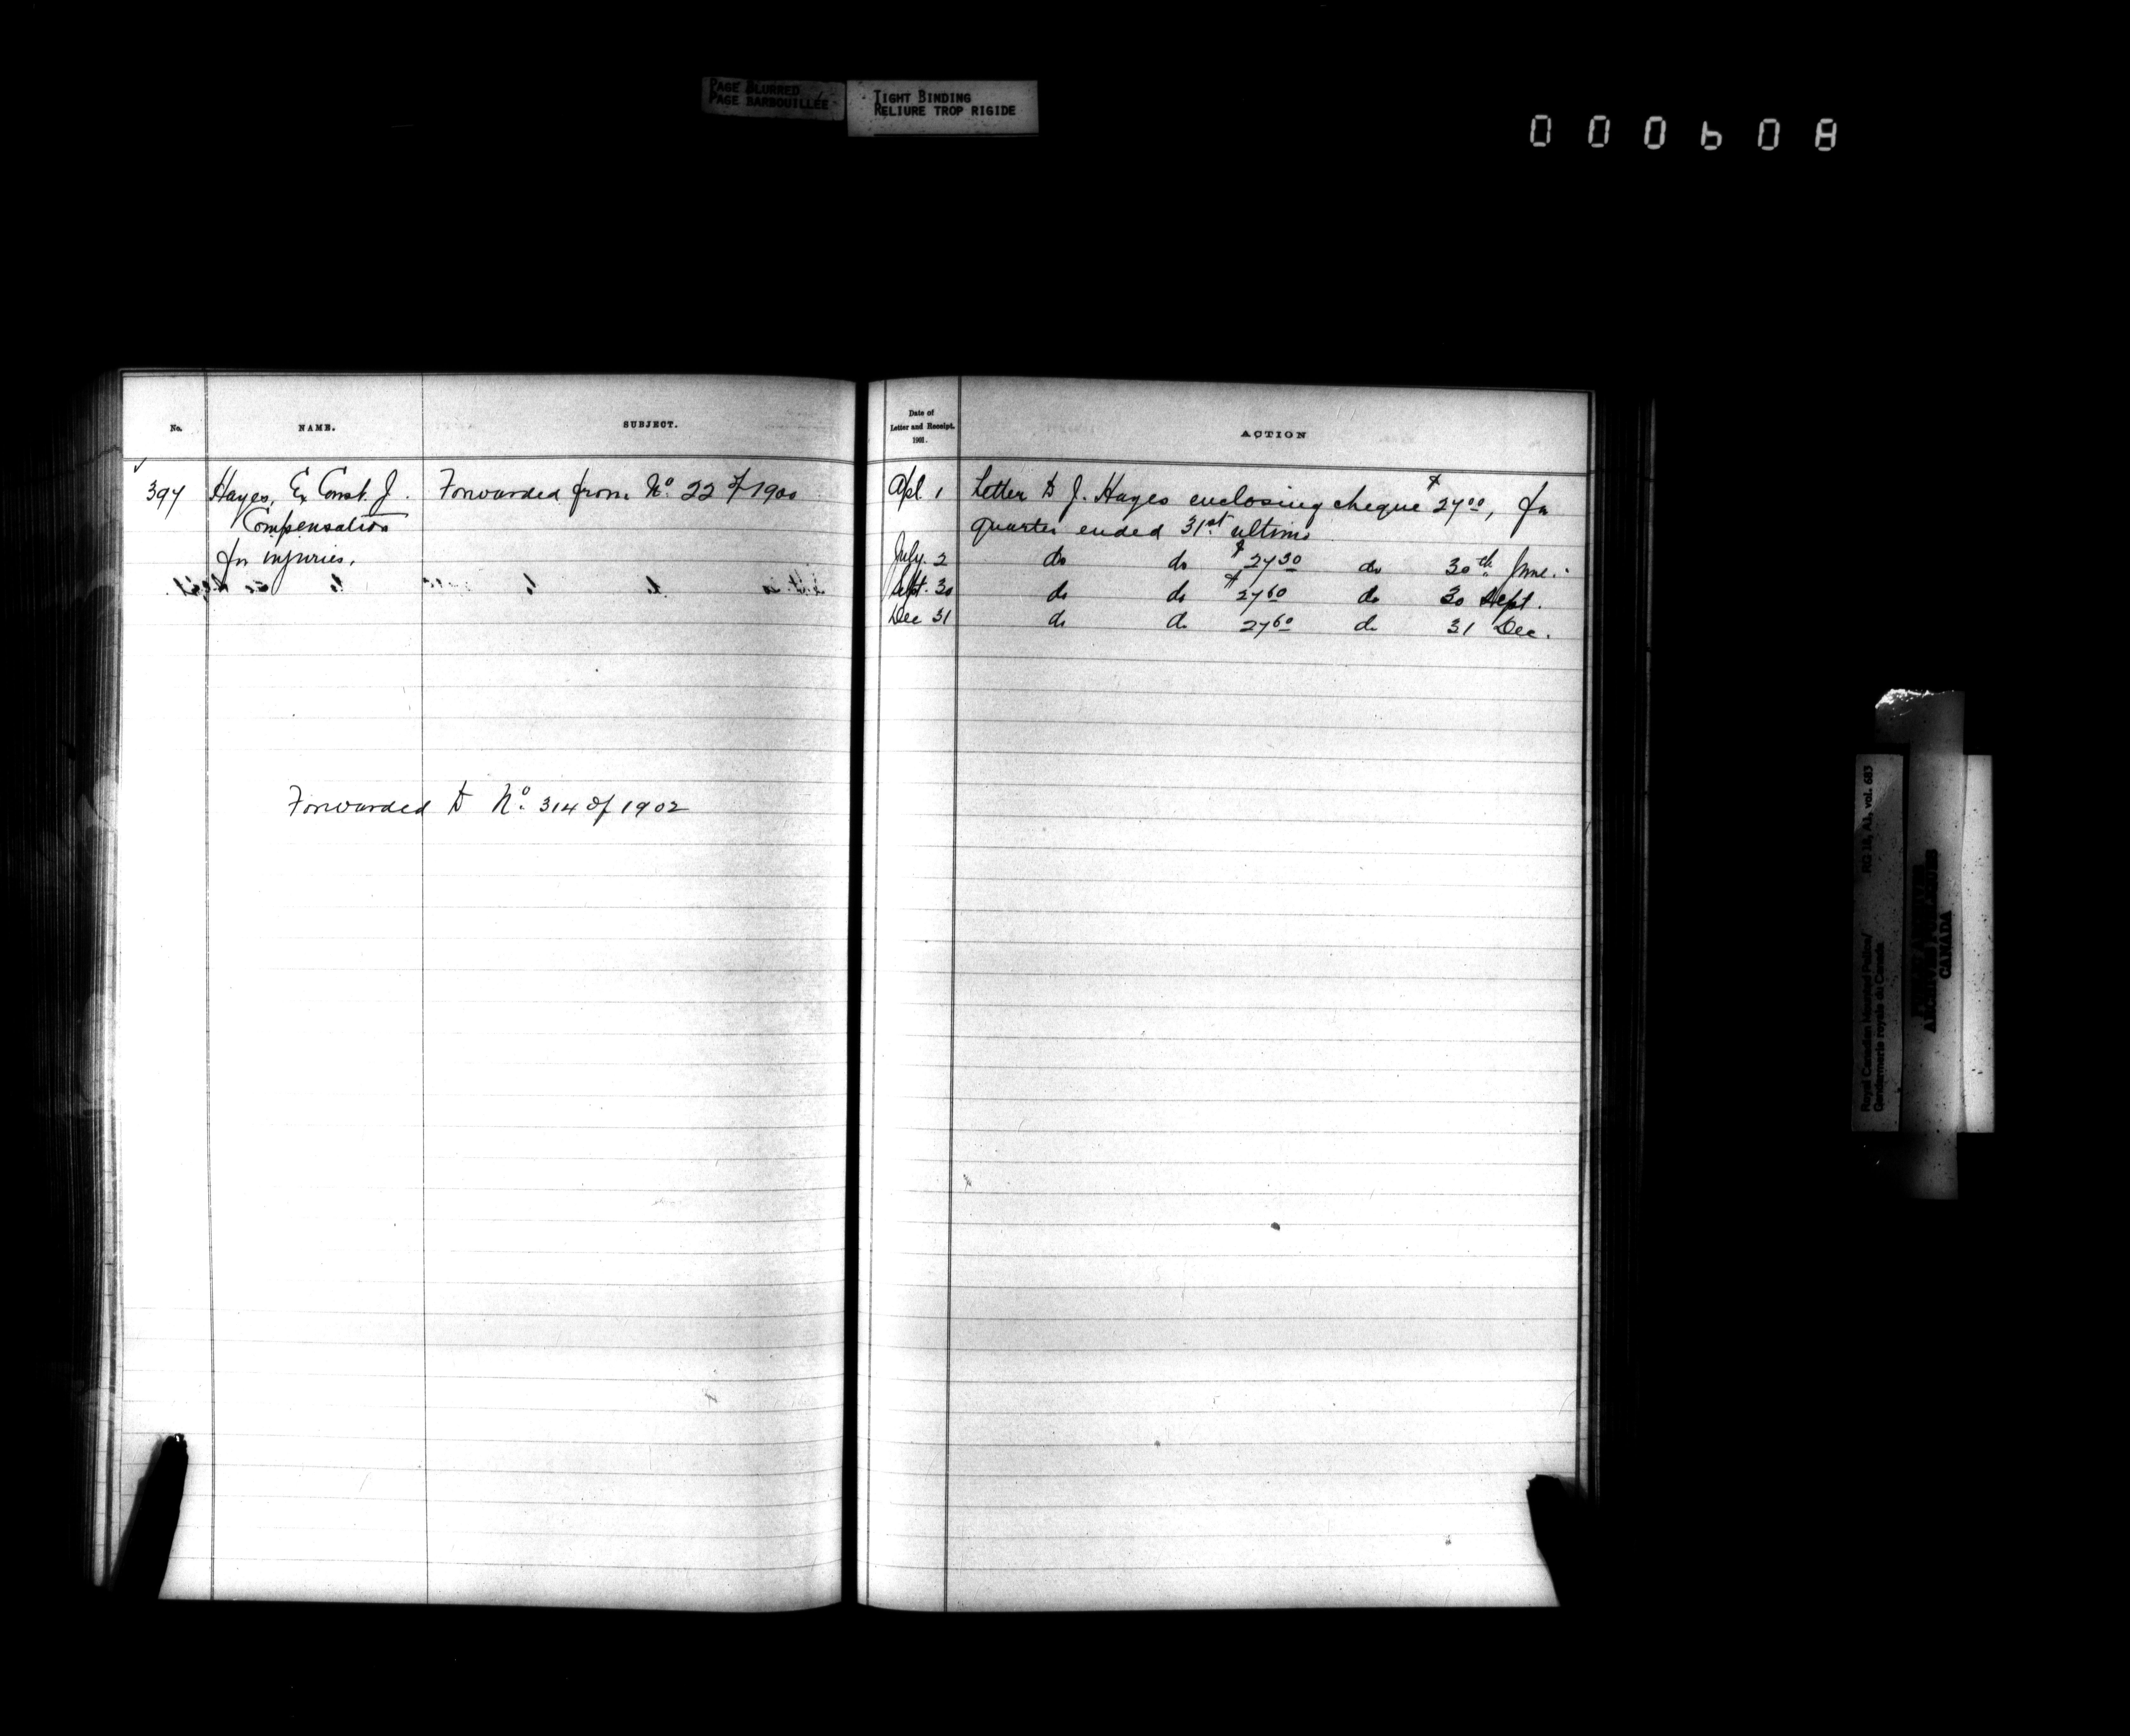 PAGE BLURRED
PAGE BARBOUILLÉE
TIGHT BINDING
RELIURE TROP RIGIDE
000608
No. NAME. SUBJECT.
397 Hayes, Ex Const. J. Forwarded from No. 22 of 1900
Compensation
for injuries.
Forwarded to No. 314 of 1902
Date of
Letter and Receipt.
1901.
ACTION
Apl. 1 Letter to J. Hayes enclosing cheque $27 00, for
quarter ended 31st. ultimo
July. 2 do do $27 30 do 30th June.
Sept. 30 do do $27 60 do 30 Sept.
Dec 31 do do 27 60 do 31 Dec.
Royal Canadian Mounted Police/ RG 18, A1, vol. 683
Gendarmerie royale du Canada
CANADA